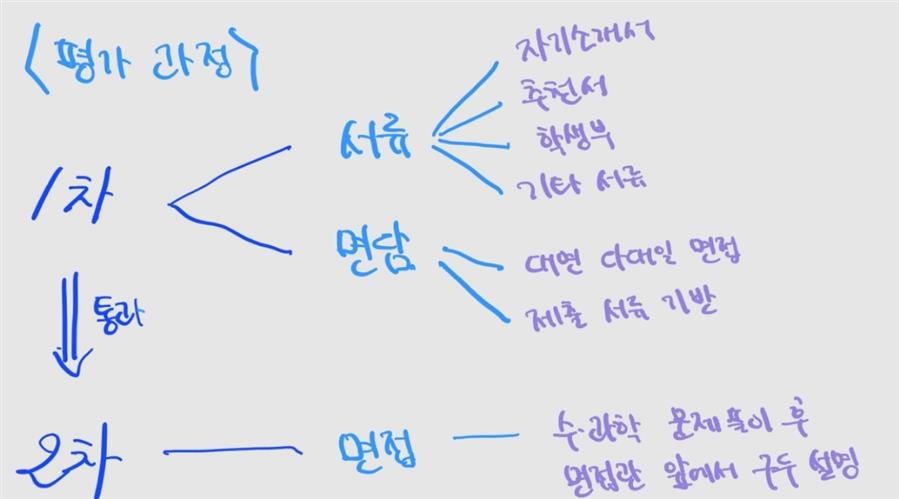 <평가 과정>
1차
서류
자기소개서
추천서
학생부
기타 서류
면담
대면 다대일 면접
제출 서류 기반
통과
2차
면접
수·과학 문제풀이 후
면접관 앞에서 구두 설명